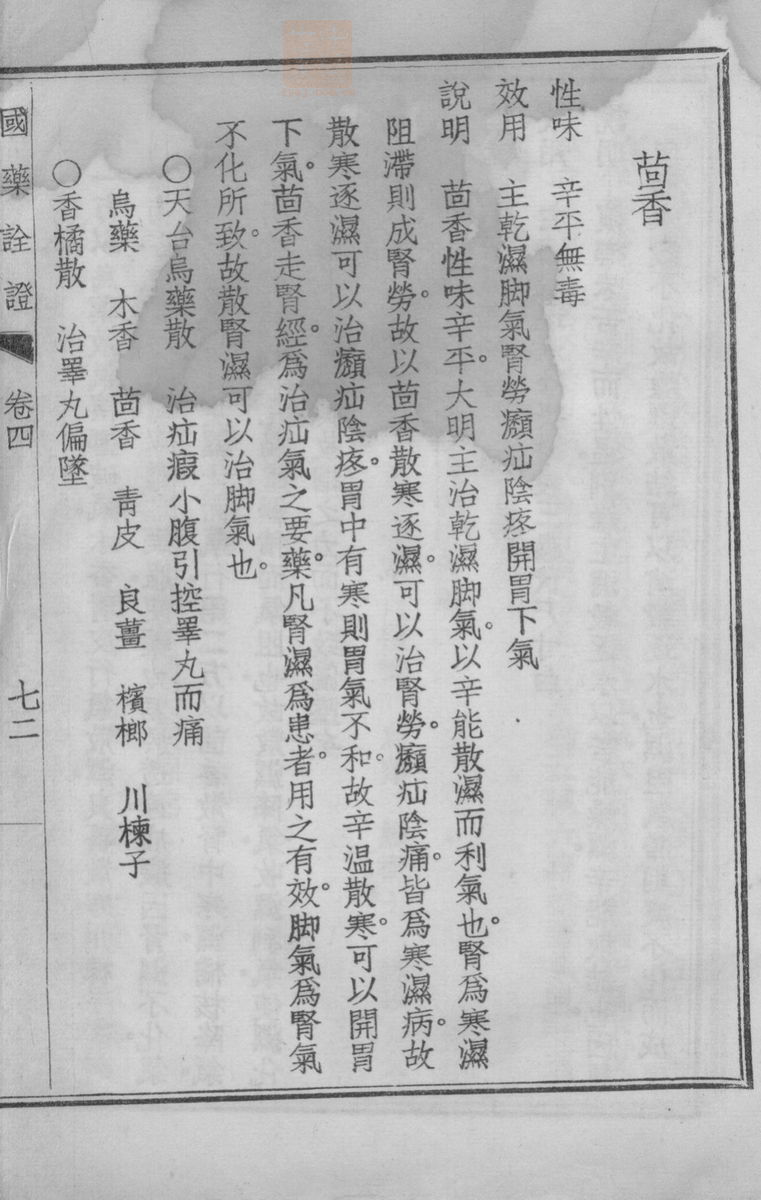 茴香
性味　辛平無毒
效用　主乾濕脚氣腎勞癩疝陰疼開胃下氣
說明　茴香性味辛平。大明主治乾濕脚氣。以辛能散濕而利氣也。腎爲寒濕
阻滯則成腎勞。故以茴香散寒逐濕。可以治腎勞。癩疝陰痛。皆爲寒濕病。故
散寒逐濕可以治癩疝陰疼。胃中有寒則胃氣不和。故辛温散寒。可以開胃
下氣。茴香走腎經。爲治疝氣之要藥。凡腎濕爲患者。用之有效。脚氣爲腎氣
不化所致。故散腎濕可以治脚氣也。
○天台烏藥散　治疝瘕小腹引控睪丸而痛
烏藥　木香　茴香　靑皮　良薑　檳榔　川楝子
○香橘散　治睪丸偏墜
國藥詮證　卷四　七二